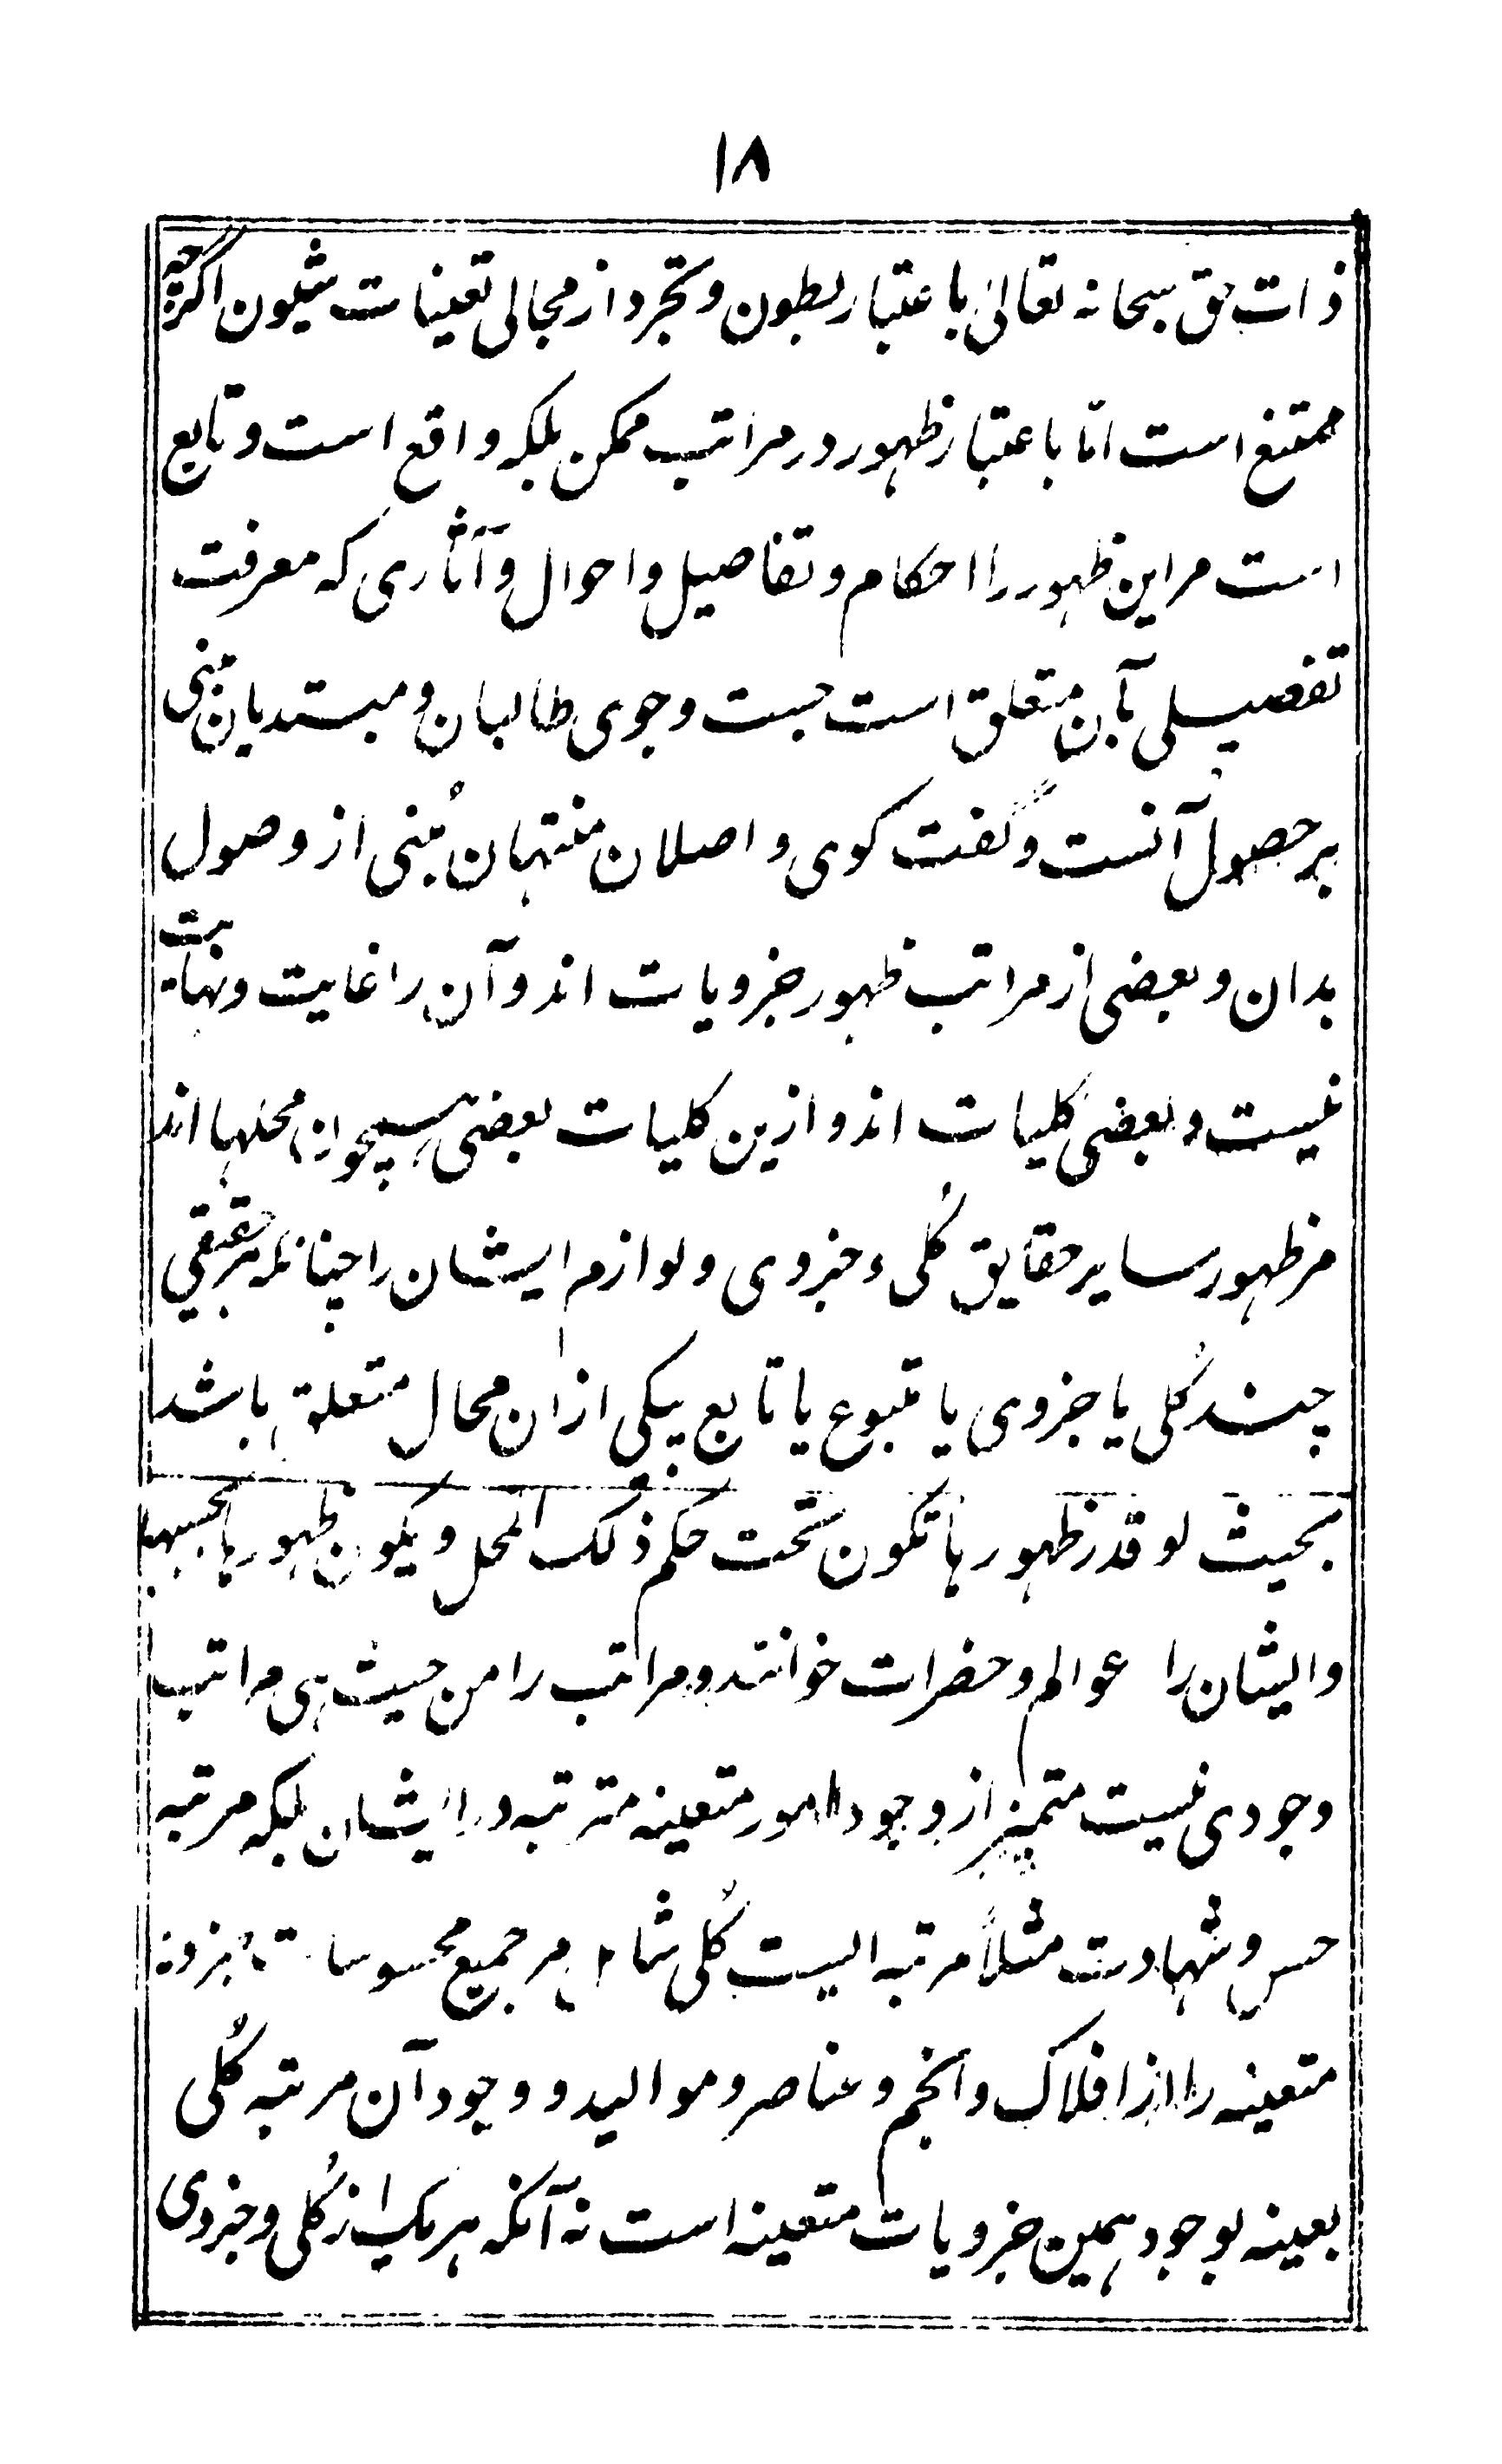 ۱۸
ذات حق سبحانه تعالیٰ باعتبار بطون و تجرد از مجالی تعینات شیون اگرچه
ممتنع است امّا باعتبار ظهور در مراتب ممکن بلکه واقع است و تابع
است مر این ظهور را احکام و تفاصیل و احوال و آثاری که معرفت
تفصیلی بآن متعلق است جست و جوی طالبان و مبتدیان مبنی
بر حصول آنست و گفت کوی واصلان منتهیان مُبنی از وصول
بدان و بعضی از مراتب ظهور جزویات اند و آن را غایت و نهایت
نیست و بعضی کلیات اند و ازین کلیات بعضی همچون محلها اند
مر ظهور سایر حقایق کُلی و جزوی و لوازم ایشان را چنانکه هر حقیقی
چند کُلی یا جزوی یا متبوع یا تابع بیکی از ان محال متعلق باشد
بحیث لو قدر ظهورها تکون تحت حکم ذلک المحل و یکون ظهورها بحسبها
و ایشان را عوالم و حضرات خوانند و مراتب را من حیث هی مراتب
وجودی نیست متمیز از وجود امور متعینه مترتبه در ایشان بلکه مرتبه
حس و شهادت مثلاً مرتبه ایست کُلی شامل مر جمیع محسوسات جزویه
متعینه را از افلاک و انجم و عناصر و موالید و وجود آن مرتبه کُلی
بعینه بوجود همین جزویات متعینه است نه آنکه هر یک از کُلی و جزوی